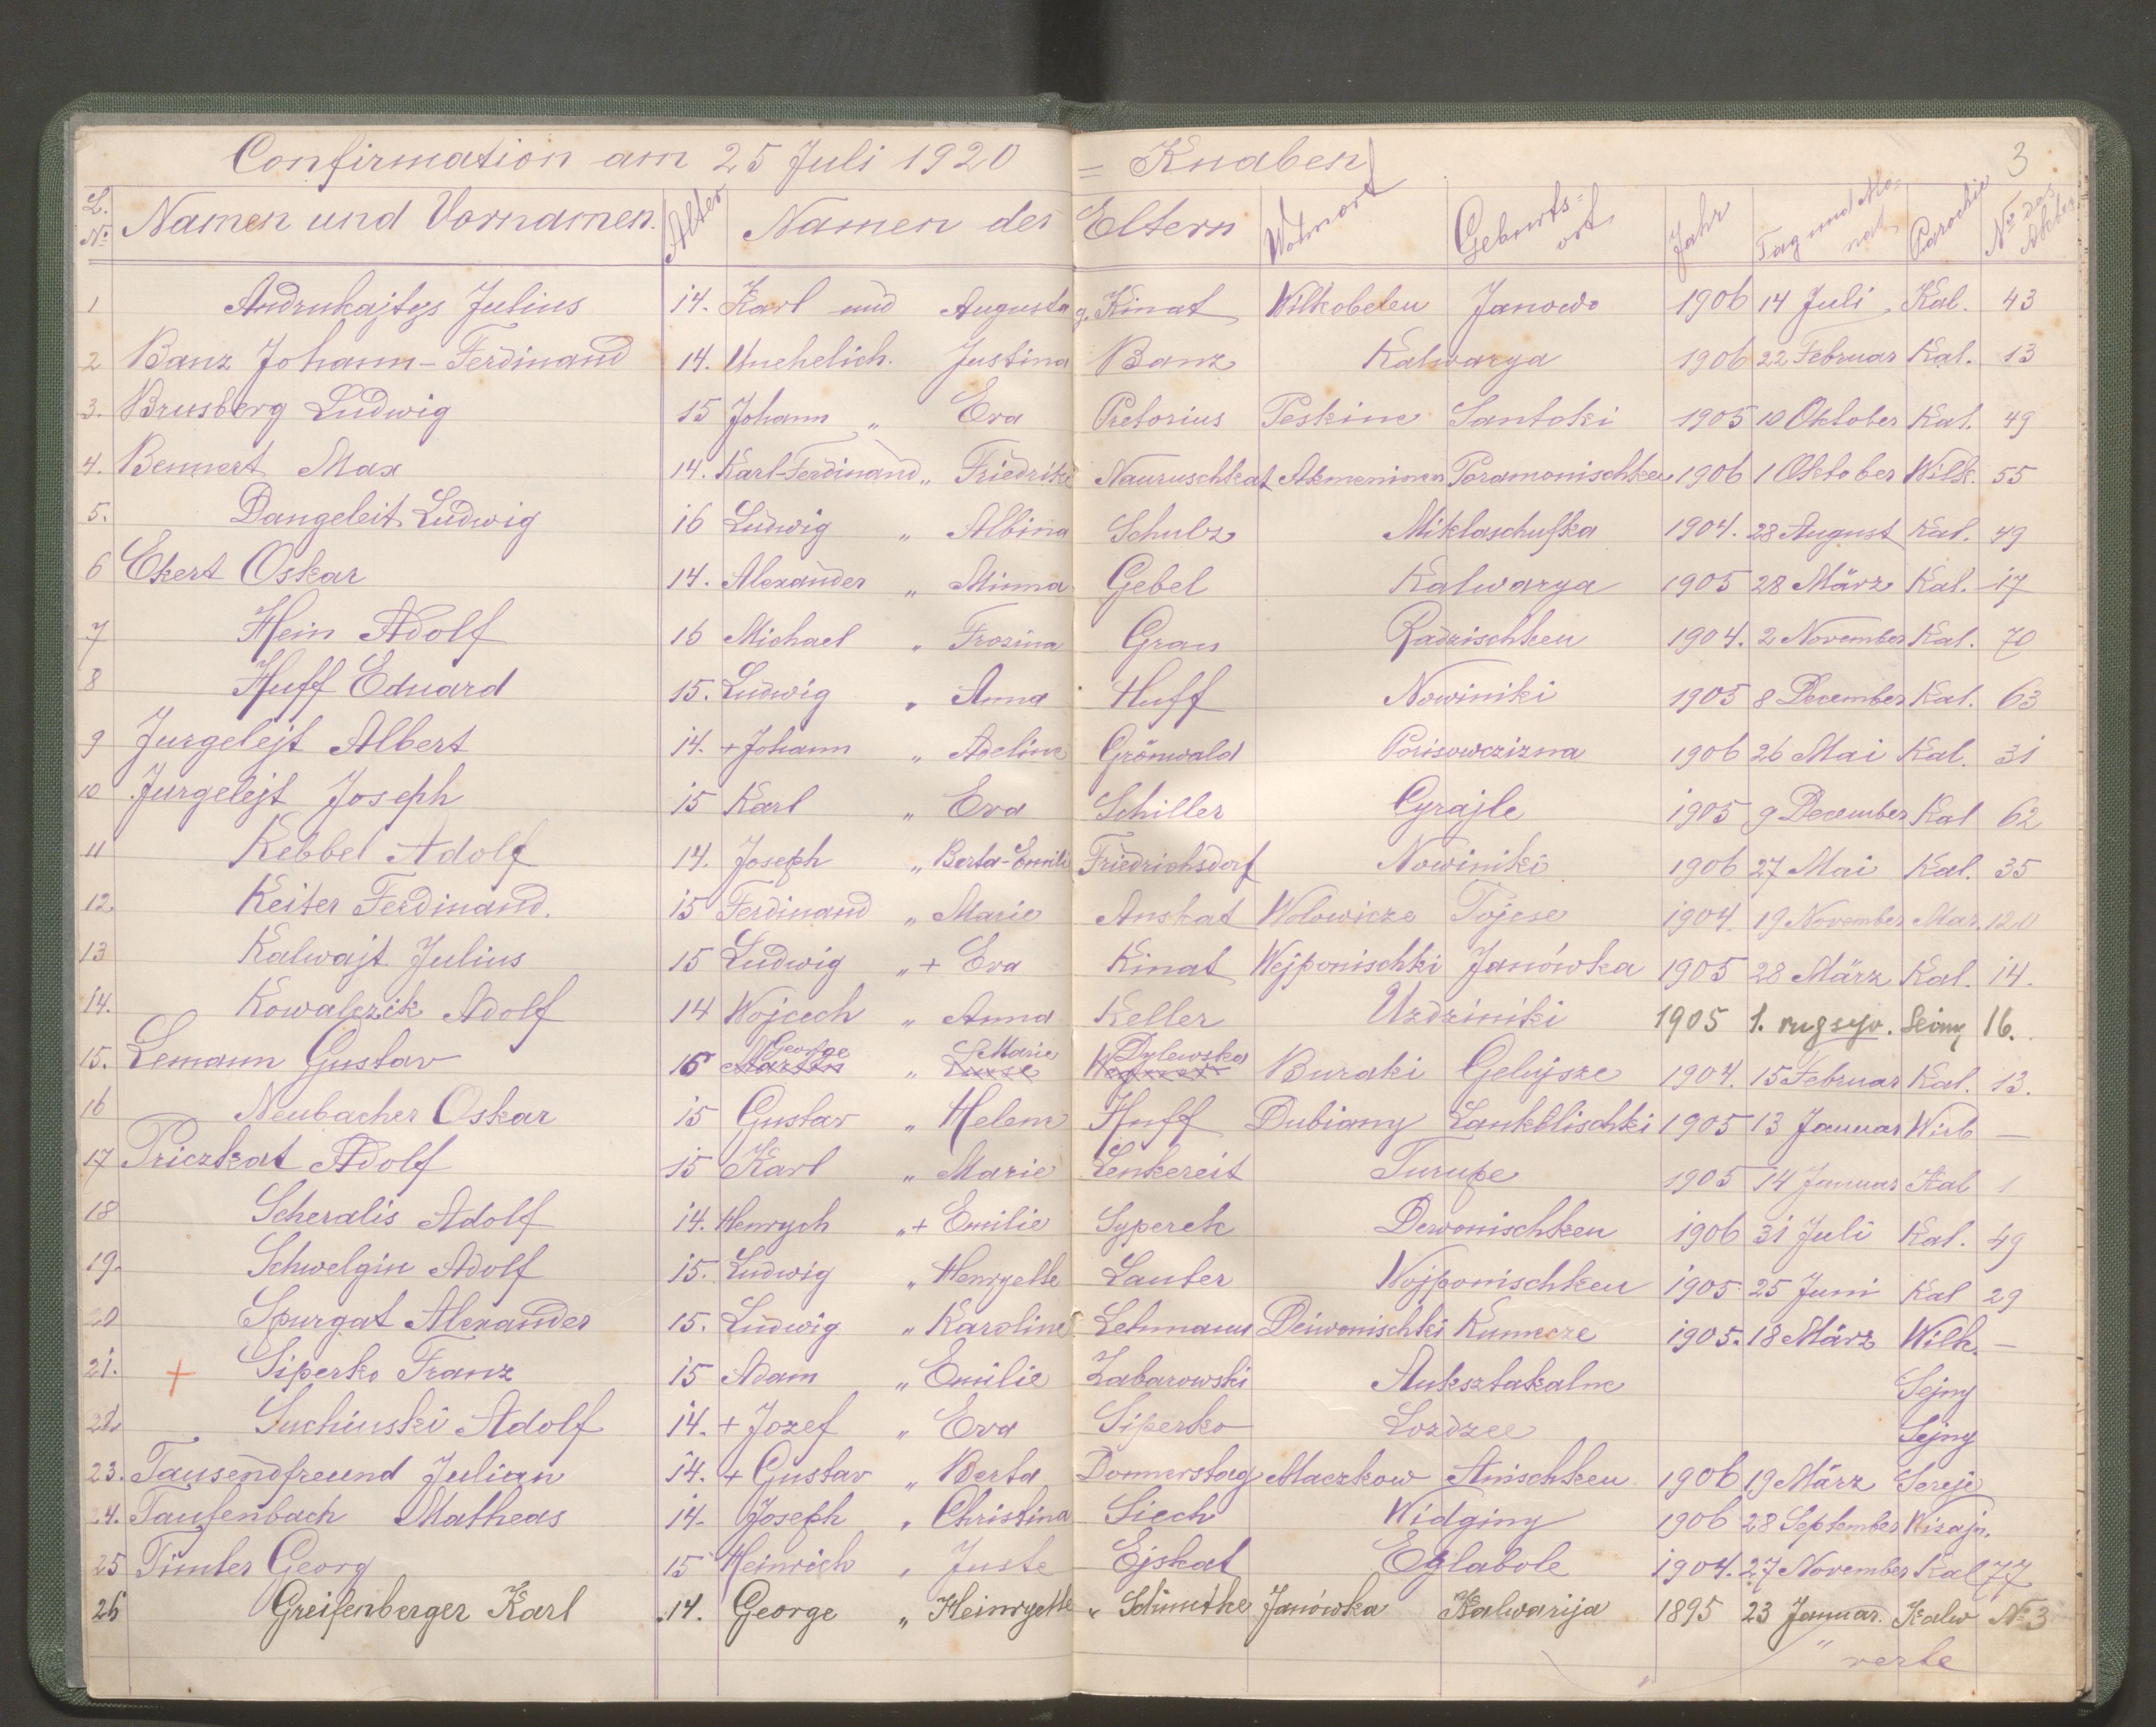 Confirmation am 25 Juli 1920 = Knaben 3
L. No. Namen und Vornamen. Alter Namen der Eltern Wohnort Geburts=ort Jahr Tag und Monat Parochie No des Aktes
1 Andrukajtys Julius 14. Karl und Augusta g. Kinat Wilkobolen Janowo 1906 14 Juli Kal. 43
2 Banz Johann-Ferdinand 14. Unehelich. Justina Banz Kalwarya 1906 22 Februar Kal. 13
3. Brusberg Ludwig 15 Johann „ Eva Pretorius Peskine Santaki 1905 10 Oktober Kal. 49
4. Bennert Max 14. Karl-Ferdinand „ Friedrike Nauruschkat Akmeninen Poramonischken 1906 1 Oktober Wilk. 55
5. Dangeleit Ludwig 16 Ludwig „ Albina Schulz Miklaschufka 1904. 28 August Kal. 49
6 Ekert Oskar 14. Alexander „ Minna Gebel Kalwarya 1905 28 März Kal. 17
7 Hein Adolf 16 Michael „ Frosina Grau Radzischken 1904. 2 November Kal. 70
8 Huff Eduard 15. Ludwig „ Anna Huff Nowiniki 1905 8 December Kal. 63
9 Jurgelejt Albert 14. + Johann „ Adeline Grönwald Porisowczizna 1906 26 Mai Kal. 31
10 Jurgelejt Joseph 15 Karl „ Eva Schiller Cyrajle 1905 9 December Kal 62
11 Kebbel Adolf 14. Joseph „ Berta-Emili Friedrichsdorf Nowiniki 1906 27 Mai Kal. 35
12 Keiter Ferdinand. 15 Ferdinand „ Marie Anskat Wolowicze Tojese 1904. 19 November Mar. 120
13 Kalwajt Julius 15 Ludwig „ + Eva Kinat Wejponischki Janówka 1905 28 März Kal. 14.
14. Kowalczik Adolf 14 Wojcech „ Anna Keller Uzdziniki 1905 1. rugsėjo. Seiny 16.
George Marie Dylewska
15. Lemann Gustav 16 Martin „ Luise Buraki Gelujsze 1904. 15 Februar Kal. 13.
16 Neubacher Oskar 15 Gustav „ Helene Huff Dubiany Lankelischki 1905 13 Januar Wirb —
17 Priczkat Adolf 15 Karl „ Marie Lenkereit Turupe 1905 14 Januar Kal 1
18 Scheralis Adolf 14. Henrych „ + Emilie Syperek Dewonischken 1906 31 Juli Kal. 49
19. Schwelgin Adolf 15. Ludwig „ Henryette Lauter Wojponischken 1905. 25 Juni Kal 29
20 Spurgat Alexander 15. Ludwig „ Karoline Lehmann Deiwonischki Kumecze 1905. 18 März Wilk. —
21. + Siperko Franz 15 Adam „ Emilie Zabarowski Auksztakalne Sejny
22 Suchinski Adolf 14. + Jozef „ Eva Siperko Lozdzee Sejny
23. Tausendfreund Julian 14. + Gustav „ Berta Donnerstag Maczkow Anischken 1906 19 März Sereje
24. Taufenbach Matheas 14. Joseph „ Christina Siech Widginy 1906 28 September Wizajn.
25 Timler Georg 15 Heinrich „ Juste Ejskat Eglabole 1904. 27 November Kal 77
26 Greifenberger Karl 14. George „ Heinryette „ Schimthe Janówka Kalwarija 1895 23 Januar. Kalw No 3
„ verte